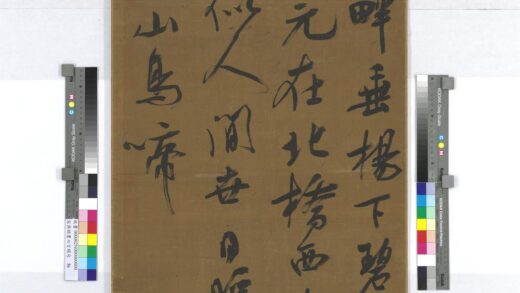 畔垂楊下碧
元在北橋西
似人間世日暖
山鳥啼